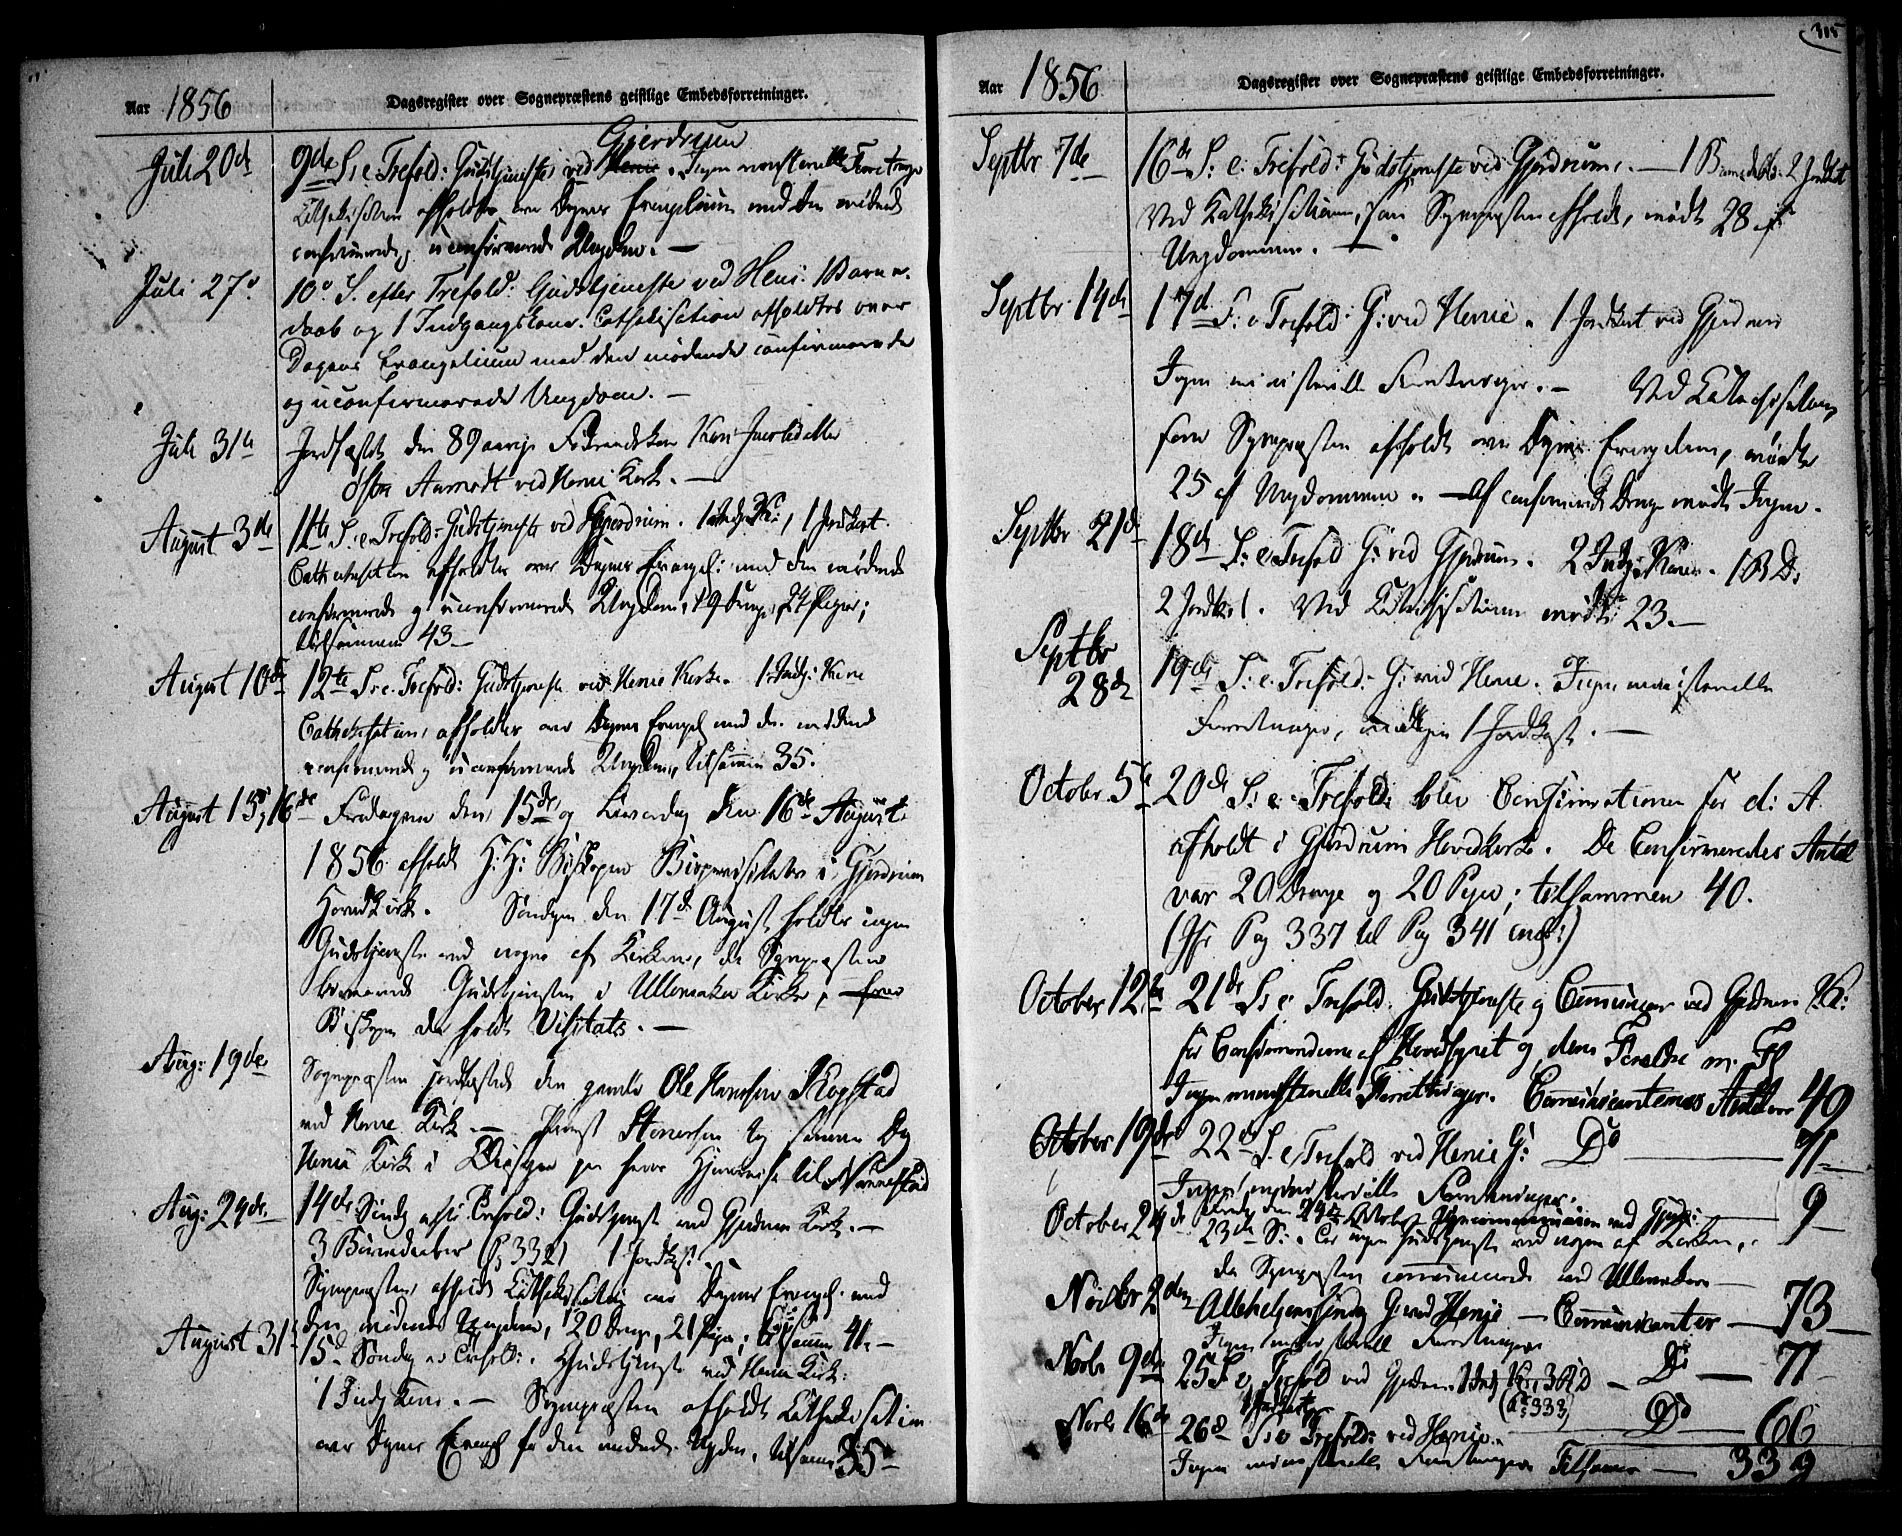 Aar 1856 Dagsregister over Sognepræstens geistlige Embedsforretninger.
Juli 20de 9de S: e Trefold: Gudstjeneste ved Gjerdrum. Ingen ministerielle Forretninger
Cathekisation afholdtes over Dagens Evangelium med den mødende
confirmerede og uconfirmerede Ungdom. —
Juli 27de 10de S. efter Trefold: Gudstjeneste ved Heni. 1 Barne-
daab og 1 Indgangskone. Cathekisation afholdtes over
Dagens Evangelium med den mødende confirmerede
og uconfirmerede Ungdom. —
Juli 31te Jordfæstet den 89 aarige Kari
ved Henie Kirke. —
August 3de 11te S: e Trefold: Gudstjeneste ved Gjerdrum. 1 Jordkast.
Cathekisation afholdtes over Dagens Evangel: med den mødende
confirmerede og uconfirmerede Ungdom, 19 Drenge, 24 Piger;
tilsammen 43 —
August 10de 12te S: e Trefold: Gudstjeneste ved Henie Kirke. 1 Indg: Kone
Cathekisation afholdtes over Dagens Evangel med den mødende
confirmerede og uconfirmerede Ungdom, tilsammen 35.
August 15 og 16de Fredagen den 15de og Løverdag den 16de August
1856 afholdt H: H: Biskopen Bispevisitats i Gjerdrum
Hovedkirke. Søndagen den 17de August holdtes ingen
Gudstjeneste ved nogen af Kirkerne, da Sognepræsten
Gudstjenesten i Ullensaker Kirke, hvor
Biskopen da holdt Visitats. —
Aug: 19de Sognepræsten jordfæstede den gamle Ole Hansen Kogstad
ved Henie Kirke. — Provst Stenersen tog samme Dag
Henie Kirke i Øiesyn paa hans Hjemreise til Nannestad
Aug: 24de 14de Søndag efter Trefold: Gudstjeneste ved Gjerdrum Kirke. —
3 Barnedaaber (P. 332) 1 Jordkast. —
Sognepræsten afholdt Cathekisation over Dagens Evangel. med
den mødende Ungdom, 20 Drenge, 21 Piger; tilsammen 41. —
August 31te 15de Søndag e Trefold: Gudstjeneste ved Henie Kirk:
1 Indg Kone. — Sognepræsten afholdt Cathekisation
over Dagens Evangel for den mødende Ungdom, tilsamm 35 —
315
Aar 1856 Dagsregister over Sognepræstens geistlige Embedsforretninger.
Septbr 7de 16de S: e. Trefold: Gudstjeneste ved Gjerdrum. — 1 Barnedaab. 2 Jordkast
Ved Kathekisationen, som Sognepræsten afholdt, mødte 28 af
Ungdommen. —
Septbr 14de 17de S: e Trefold: G: ved Henie. 1 Jordkast ved Gjerdrum
Ingen ministerielle Forretninger. — Ved Cathekisationen
som Sognepræsten afholdt over Dagens Evangelium, mødte
25 af Ungdommen. — Af confirmerede Drenge mødte Ingen.
Septbr 21de 18de S: e Trefold G: ved Gjerdrum. 2 Indg: Koner. 1 B D:
2 Jordkast. Ved Cathekisationen mødte 23. —
Septbr
28de 19de S: e. Trefold: G: ved Henie. Ingen ministerielle
Forretninger, 1 Jordkast. —
October 5te 20de S: e: Trefold: blev Confirmationen for d: A
afholdt i Gjerdrum Hovedkirke. De Confirmeredes Antal
var 20 Drenge og 20 Piger; tilsammen 40.
(Jfr Pag 337 til Pag 341 incl:)
October 12te 21de S: e Trefold. Gudstjeneste og Communion ved Gjerdrum K:
for Confirmanderne af Hovedsognet og deres Forældre m. Fl
Ingen ministerielle Forretninger. Communicanternes Antal var 49
October 19de 22de S. e Trefold ved Henie G: Do — 71 —
Ingen ministerielle Forretninger.
October 24de den 24de October ved Gjerdr: 9 —
23de S: e ingen Gudstjeneste ved nogen af Kirkerne,
da Sognepræsten communicerede ved Ullensaker —
Novbr 2den Allehelgenssøndag G: ved Henie — Communicanter — 73 —
Ingen ministerielle Forretninger
Novbr 9de 25 S. e Trefold ved Gjerdrum 1 Indg K:, 3 B D — Do — 71 —
1 Jordkast (Pag 333)
Novbr 16de 26de S: e Trefold: ved Henie. — Do — 66
Ingen ministerielle Forretninger Tilsammen — 339